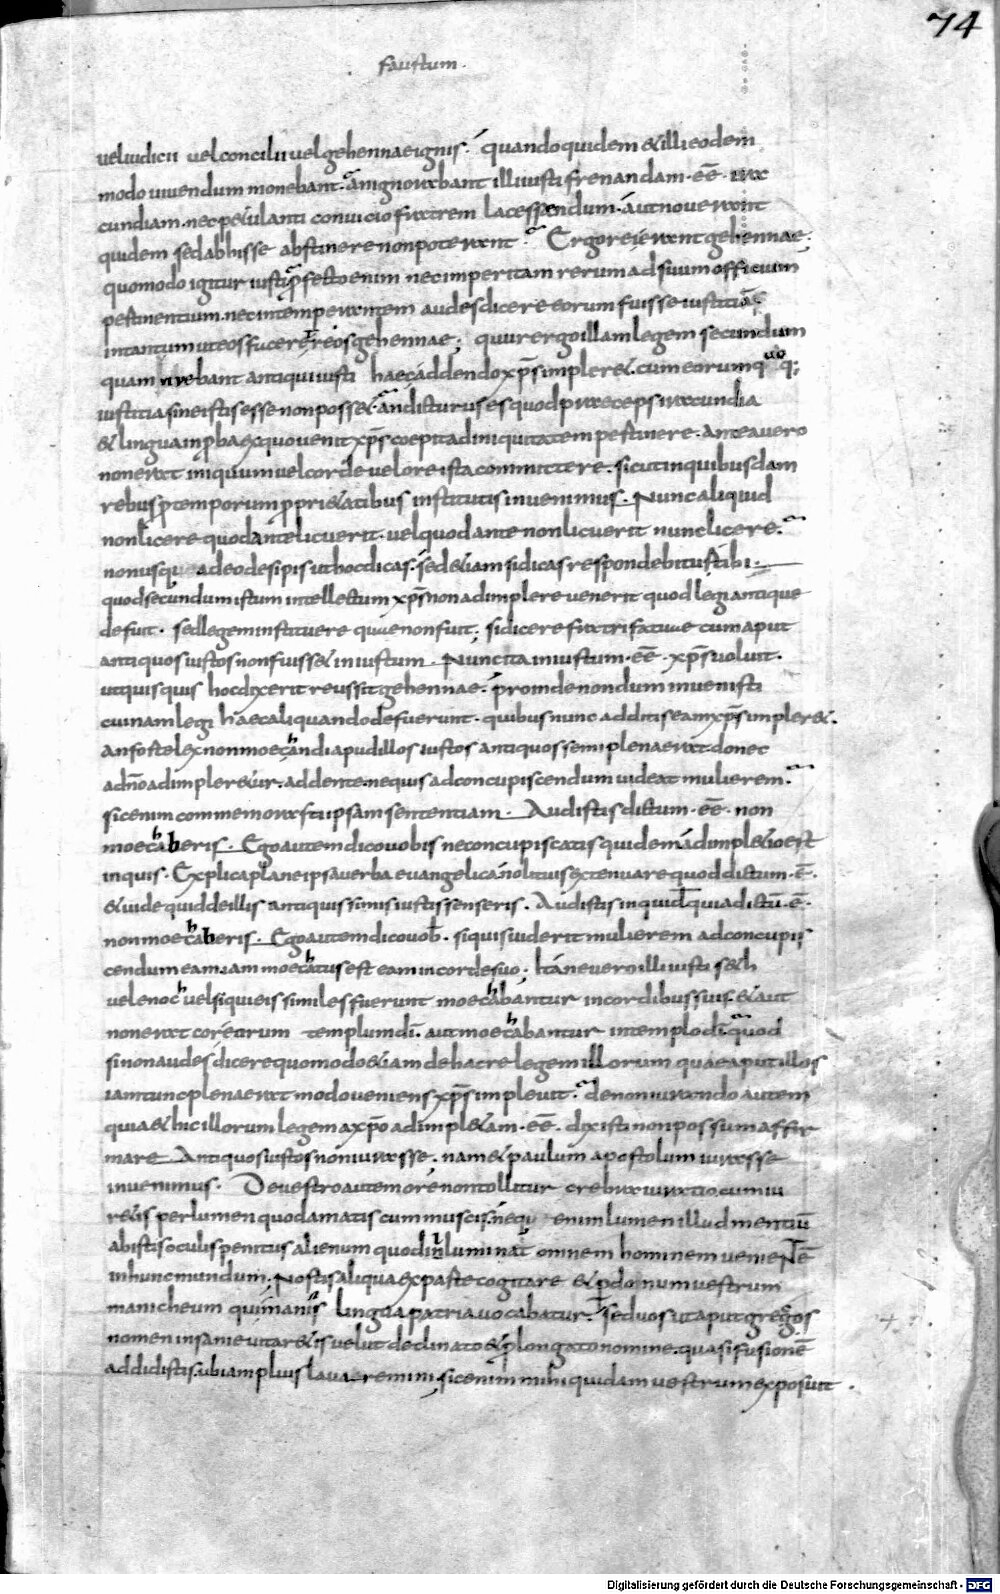 74
faustum.
veliudicii vel concilii vel gehennae ignis. quandoquidem & illi eodem
modo vivendum monebant. an ignorabant illi iusti frenandam. eē. ira
cundiam. nec petulanti convicio fratrem lacessendum. aut noverant
quidem sed ab hisse abstinere non poterant. Ergo rei erant gehennae;
quomodo igitur iusti profecto enim nec imperitam rerum ad suum officium
pertinentium. nec intemperantem audes dicere eorum fuisse iustitiā
in tantum ut eos faceret reos gehennae; quur ergo illam legem secundum
quam vivebant antiqui iusti haec addendo xp̄s implere&. cum eorum quoq;
iustitia sine istis esse non poss&. an dicturus es quod praeceps iracundia
& lingua inproba ex quo venit xp̄s coepit ad iniquitatem pertinere. Antea vero
non erat iniquum vel corde vel ore ista committere. sicut in quibusdam
rebus pro temporum propri&atibus institutis invenimus. Nunc aliquid
non licere quod ante licuerit. vel quod ante non licuerit nunc licere.
non usqu adeo desipis ut hoc dicas. sed &iam si dicas respondebitur tibi.
quod secundum istum intellectum xp̄s non adimplere venerit quod legi antique
defuit. sed legem instituere quae non fuit; si dicere fratri fatuae cum aput
antiquos iustos non fuiss& iniustum. Nunc ita iniustum. eē. xp̄s voluit.
ut quisquis hoc dixerit reus sit gehennae. proinde nondum invenisti
cuinam legi haec aliquando defuerunt. quibus nunc additis eam xp̄s impler&.
an forte lex non moechandi apud illos iustos antiquos semiplena erat donec
ad nō adimpler&ur. addente ne quis ad concupiscendum videat mulierem.
sic enim commemorasti ipsam sententiam. Audistis dictum. eē. non
moechaberis. Ego autem dico vobis ne concupiscatis quidem adimpl&io est
inquis. Explica plane ipsa verba evangelica noli tuis extenuare quod dictum. ē.
& vide quid de illis antiquissimis iustis senseris. Audistis inquid quia dictū. ē.
non moechaberis. Ego autem dico vob̄. si quis viderit mulierem ad concupis
cendum eam. iam moechatus est eam in corde suo; Itane vero illi iusti s&h
vel enoch vel si qui eis similes fuerunt moechabantur in cordibus suis. & aut
non erat cor eorum templum dī. aut moechabantur in templo dī. quod
si non audes dicere quomodo &iam de hac re legem illorum quae aput illos
iam tunc plena erat modo veniens xp̄s implevit. de non iurando autem
quia & hic illorum legem a xp̄o adimpl&am. eē. dixisti non possum affir
mare Antiquos iustos non iurasse. nam & paulum apostolum iurasse
invenimus. De vestro autem ore non tollitur crebra iuratio cum iu
r&is per lumen quod amatis cum muscis. nequ enim lumen illud mentiū
ab istis oculis penitus alienum quod inluminat omnem hominem venientē
in hunc mundum. Nostis aliqua ex parte cogitare & per domnum vestrum
manicheum qui manis lingua patria vocabatur. sed vos ut aput gregos
nomen insanie vitar&is velut declinato & prolongato nomine. quasi fusionē
addidistis. ubi amplius lavaeremini, sic enim mihi quidam vestrum exposuit.
Digitalisierung gefördert durch die Deutsche Forschungsgemeinschaft - DFG